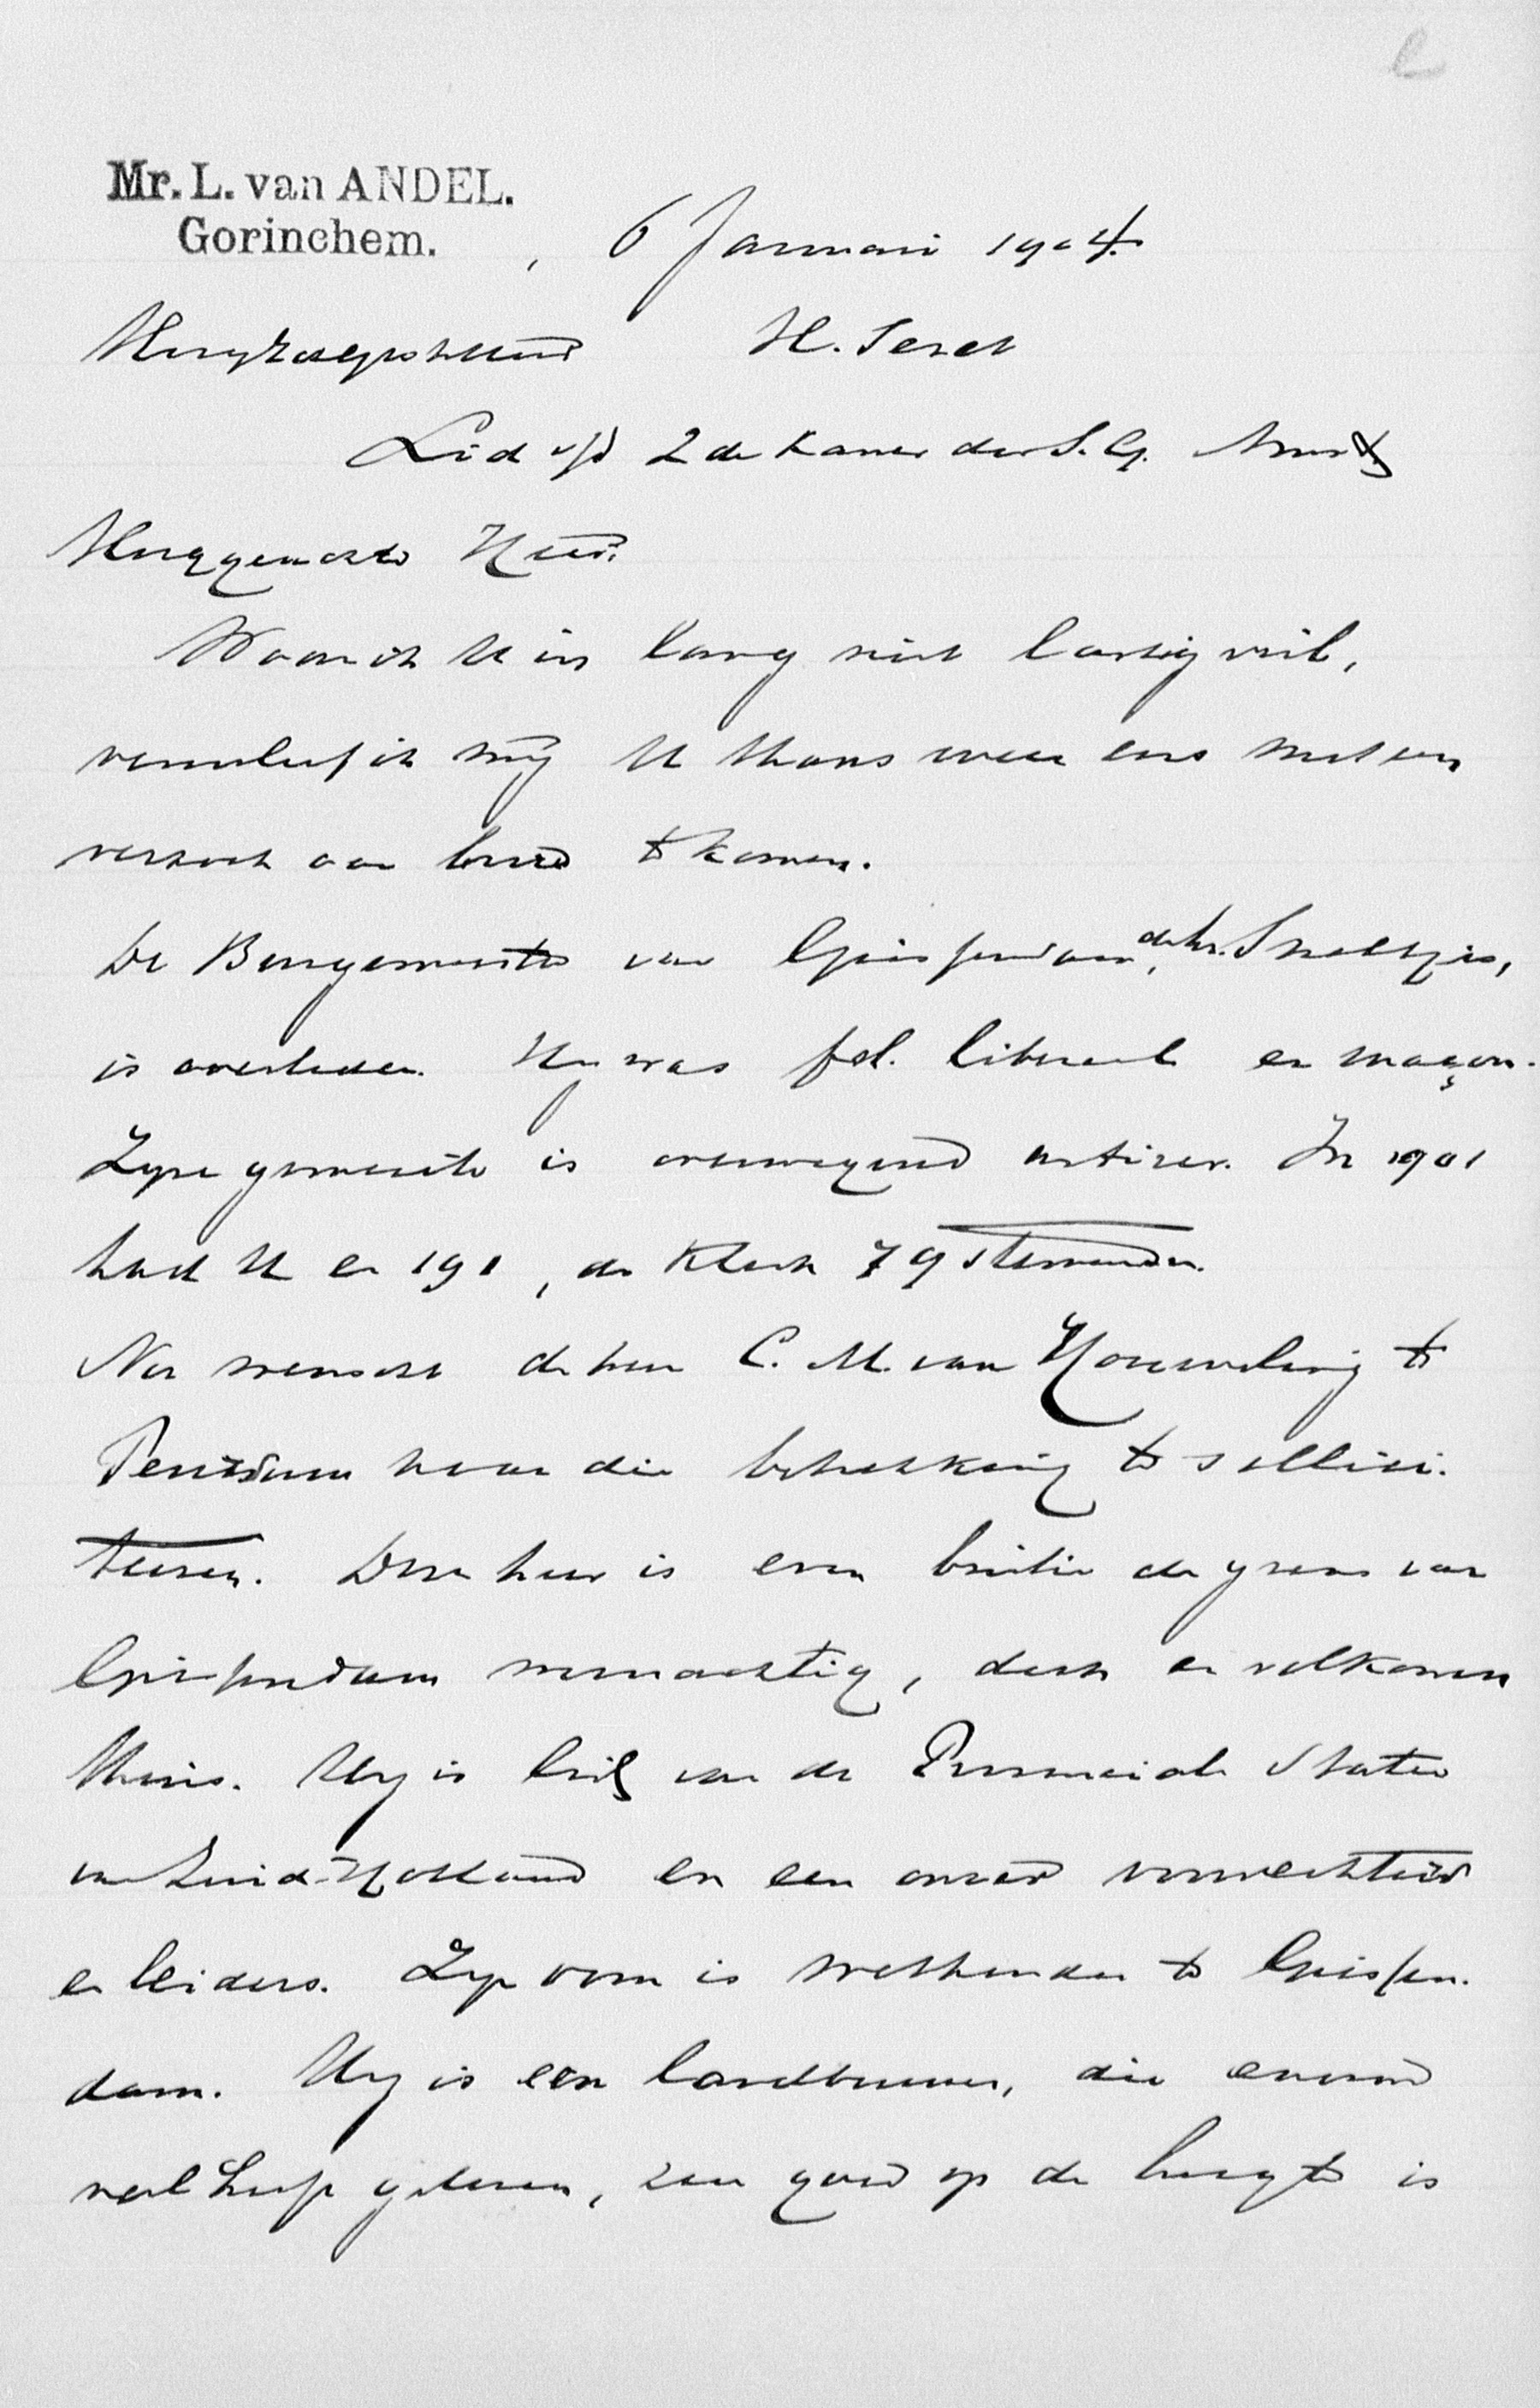 Mr. L. van ANDEL.
Gorinchem.
, 6 Januari 1904.
H. Seret
Lid v/d 2de Kamer der S. G.
Hooggeachte Heer.
Waar ik U in lang niet lastig viel,
veroorloof ik mij U thans weer eens met een
verzoek aan boord te komen.
De Burgemeester van Giessendam, de hr. Sneltjes,
is overleden. Hij was fel. liberaal en maçon.
Zijne gemeente is overwegend antirev. In 1901
had U er 191, de Klerk 79 stemmen.
Nu wenscht de heer C. M. van Houweling te
Peursum naar die betrekking te sollici-
teeren. Deze heer is even buiten de grens van
Giessendam woonachtig, doch er volkomen
thuis. Hij is lid van de Provinciale Staten
van Zuid-Holland en een onzer voorvechters
en leiders. Zijn oom is wethouder te Giessen-
dam. Hij is een landbouwer, die evenwel
veel heeft gelezen, zeer goed op de hoogte is